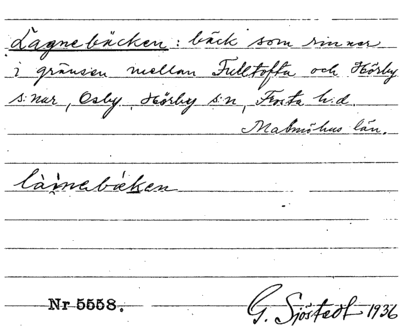 Lagnebäcken : bäck som rinner
i gränsen mellan Fulltofta och Hörby
s:nar, Osby, Hörby s:n, Frosta h:d.
Malmöhus län.
làinebäken
Nr 5558.
G. Sjöstedt 1936